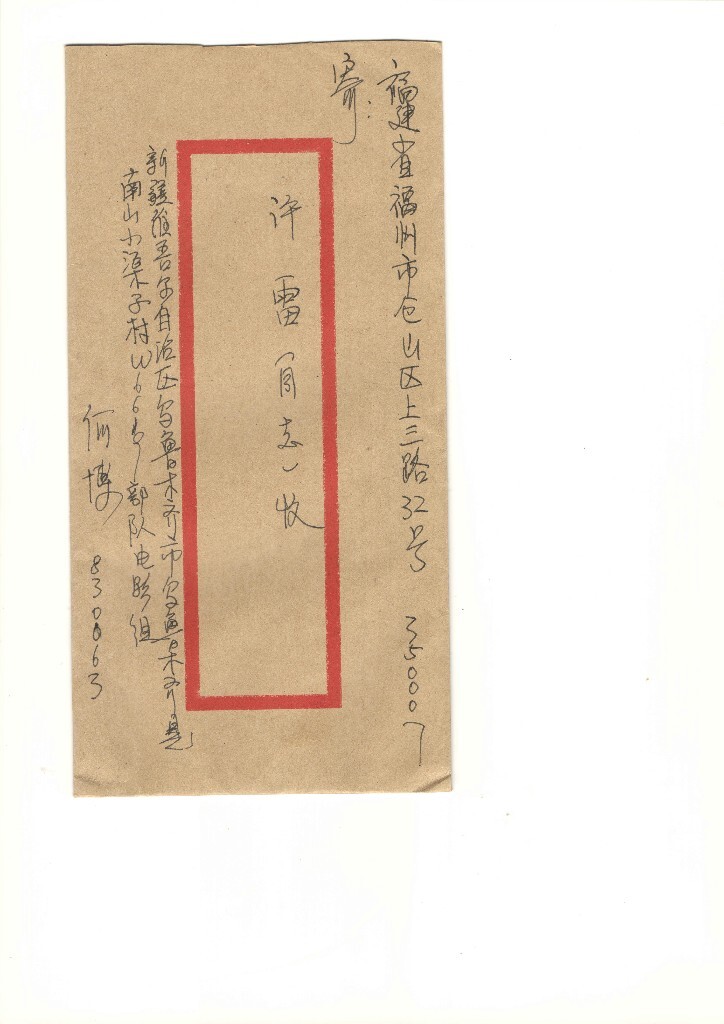 寄:
福建省福州市仓山区上三路32号 350007
许雷(同志)收
新疆维吾尔自治区乌鲁木齐市乌鲁木齐县
南山小渠子村W66号部队电影组
何博 830063